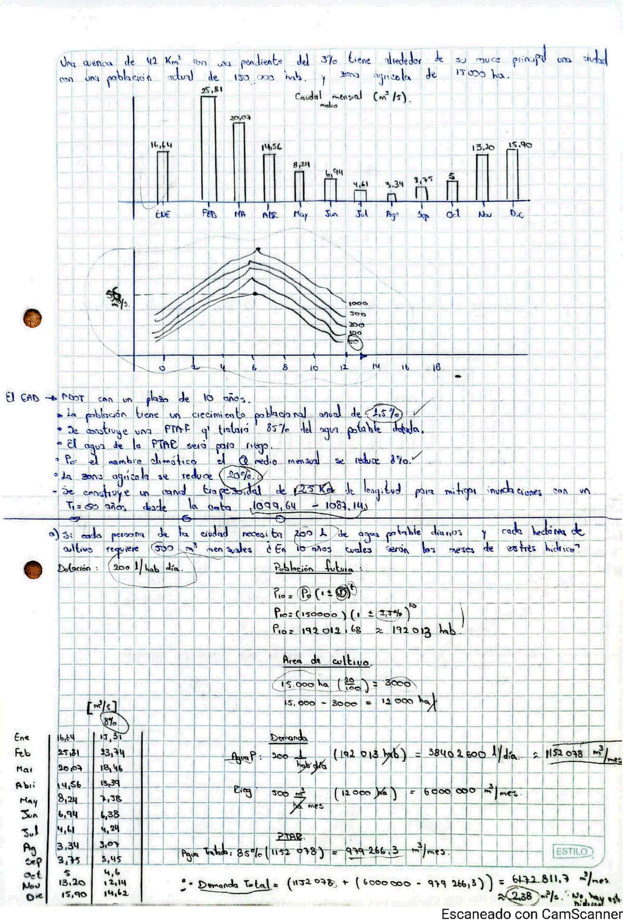 Una cuenca de 42 Km² con una pendiente del 3% tiene alrededor de su cauce principal una ciudad
con una población actual de 150.000 hab. y zona agrícola de 15000 ha.
Caudal mensual (m³/s).
medio
16,64
25,81
20,07
14,56
8,24
6,94
4,61
3.34
3,75
5
13,20
15,90
ENE FEB MA ABR May Jun Jul Ago Sep Oct Nov Dic
m³/s.
1000
500
200
100
50
0 2 4 6 8 10 12 14 16 18
El GAD → PDOT con un plazo de 10 años.
• La población tiene un crecimiento poblacional anual de 2,5%
• Se construye una PTAR q' tratará 85% del agua potable dotada.
• El agua de la PTAR será para riego.
• Por el cambio climático el Q medio mensual se reduce 8%.
• La zona agrícola se reduce 20%
- Se construye un canal trapezoidal de 2.5 Km de longitud para mitigar inundaciones con un
Tr=50 años desde la cota 1099,64 - 1087,14
a) Si cada persona de la ciudad necesita 200 L de agua potable diarios y cada hectárea de
cultivo requiere 500 m³ mensuales ¿En 10 años cuales serán los meses de estrés hídrico?
Dotación: 200 l/hab día.
Población futura:
P₁₀ = P₀ (1 ± i)ᵗ
P₁₀ = (150000) (1 ± 2,5%)¹⁰
P₁₀ = 192 012,68 ≈ 192 013 hab.
Area de cultivo.
15.000 ha (20/100) = 3000
15.000 - 3000 = 12 000 ha
[m³/s]
8%
Ene 16,64 15,31
Feb 25,81 23,74
Mar 20,07 18,46
Abril 14,56 13,39
May 8,24 7,58
Jun 6,94 6,38
Jul 4,61 4,24
Ag 3,34 3,07
Sep 3,75 3,45
Oct 5 4,6
Nov 13,20 12,14
Dic 15,90 14,62
Demanda
Agua P: 200 l/hab día (192 013 hab) = 38402600 l/día. ≈ 1152 078 m³/mes
Rieg: 500 m³/ha mes (12 000 ha) = 6000 000 m³/mes.
PTAR
Agua Tratada: 85% (1152 078) = 979 266,3 m³/mes.
∴ Demanda Total = (1152 078 + (6000000 - 979 266,3)) = 6172.811,7 m³/mes
≈ 2,38 m³/s. ∴ No hay est.
hídrico
ESTILO
Escaneado con CamScanner